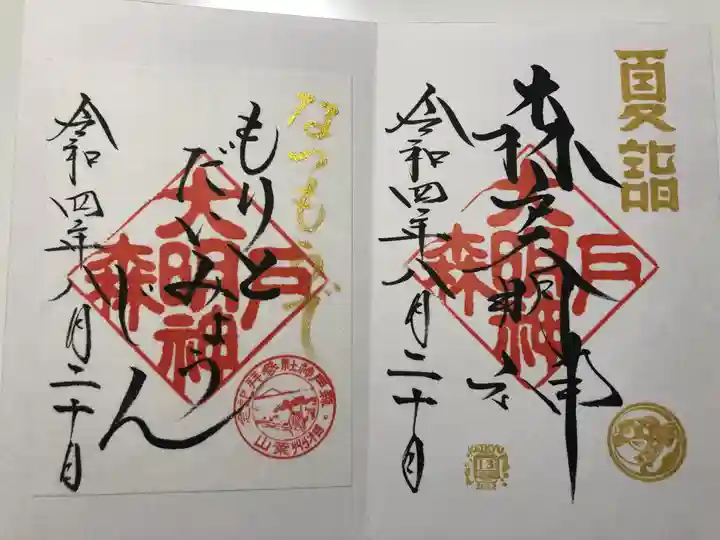 夏詣
森戸大明神
森戸大明神
令和四年八月二十日
なつもうで
もりと
だいみょう
じん
森戸大明神
令和四年八月二十日